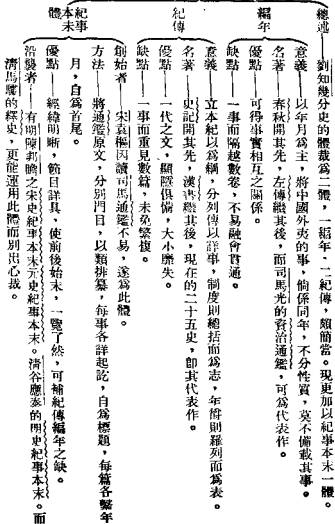 總述—劉知幾分史的體裁為二體，一編年，二紀傳，頗簡當。現更加以紀事本末一體。
編年
意義—以年月為主，將中國外夷的事，倘係同年，不分性質，莫不備載其事。
名著—春秋開其先，左傳繼其後，而司馬光的資治通鑑，可為代表作。
優點—可得事實相互之關係。
缺點—一事而隔越數卷，不易融會貫通。
紀傳
意義—立本紀以為綱，分列傳以詳事，制度則總括而為志，年爵則羅列而為表。
名著—史記開其先，漢書繼其後，現在的二十五史，即其代表作。
優點—一代之文，顯隱俱備，大小靡失。
缺點—一事而重見數篇，未免繁複。
紀事本末體
創始者—宋袁樞因讀司馬通鑑不易，遂為此體。
方法—將通鑑原文，分別門目，以類排纂，每事各詳起訖，自為標題，每篇各繫年
月，自為首尾。
優點—經緯明晰，節目詳具，使前後始末，一覽了然，可補紀傳編年之缺。
沿襲者—有明陳邦瞻之宋史紀事本末元史紀事本末。清谷應泰的明史紀事本末。而
清馬驌的繹史，更能運用此體而別出心裁。